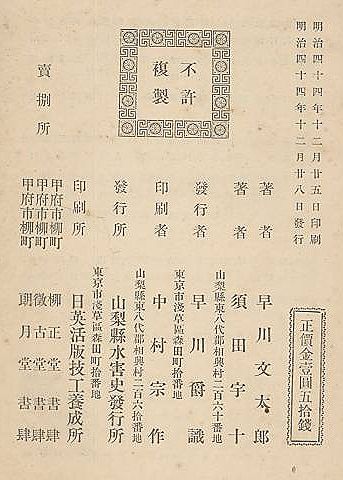 明治四十四年十二月廿五日印刷
明治四十四年十二月廿八日發行
不許
複製
正價金壹圓五拾錢
著者 早川文太郎
著者 須田宇十
山梨縣東八代郡相興村二百六十番地
發行者 早川爵識
東京市淺草區森田町拾番地
印刷者 中村宗作
山梨縣東八代郡相興村二百六拾番地
發行所 山梨縣水害史發行所
東京市淺草區森田町拾番地
印刷所 日英活版技工養成所
賣捌所
甲府市柳町 柳正堂書肆
甲府市柳町 徵古堂書肆
甲府市柳町 朗月堂書肆